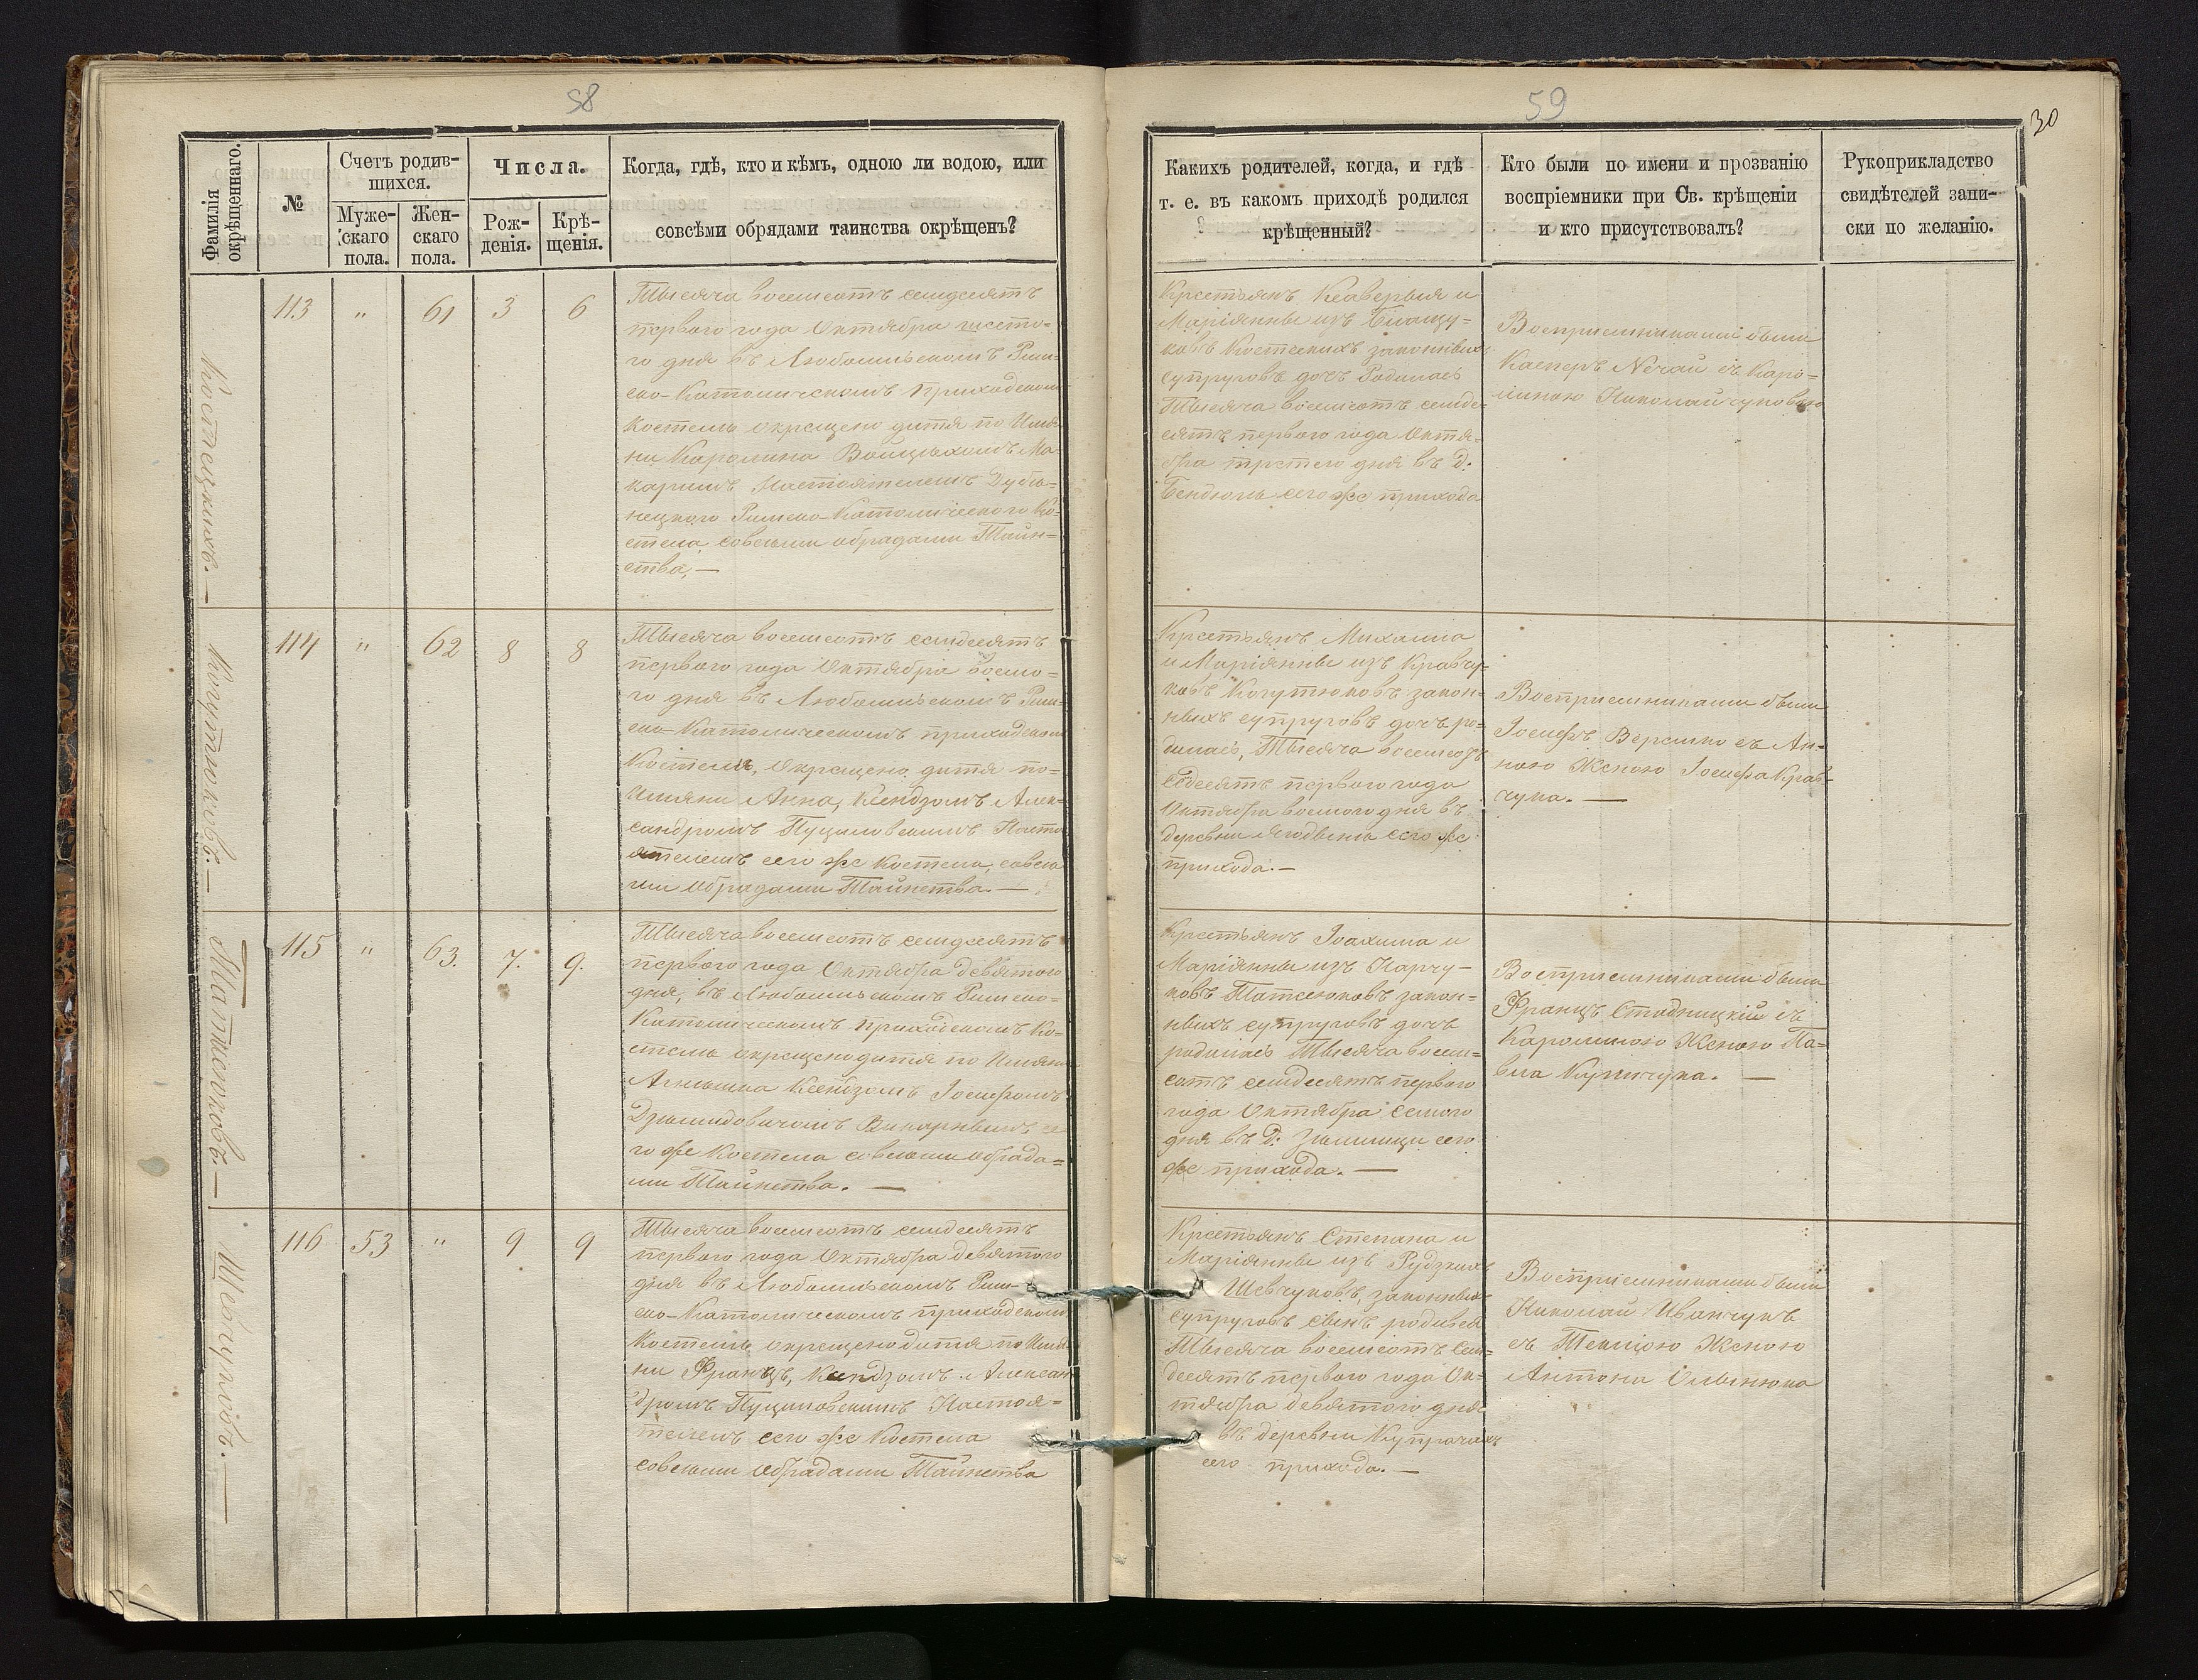 58
Фамилія окрѣщеннаго.
№
Счетъ родив-
шихся.
Муже-
скаго
пола.
Жен-
скаго
пола.
Числа.
Рож-
денія.
Крѣ-
щенія.
Когда, гдѣ, кто и кѣмъ, одною ли водою, или
совсѣми обрядами таинства окрѣщенъ?
Костецкихъ.—
113 " 61 3 6
Тысяча восемсотъ семдсятъ
первого года Октября шесто=
го дня въ Любомльскомъ Рим=
ско-Католическомъ приходском
костелѣ окрещено дитя по Имя
ни Каролина Войцѣхомъ Ма-
каримъ Настоятелемъ Дубѣ=
нецкого Римско-Католического Ко=
стела, совсѣми обрядами Таин=
ства,—
Когутюковъ.—
114 " 62 8 8
Тысяча восемсотъ семдесятъ
первого года Октября восмо=
го дня въ Любомльскомъ Рим=
ско-Католическомъ приходском
Костелѣ, окрещено дитя по-
Имяни Анна, Ксендзомъ Алек=
сандромъ Пуциловскимъ Насто
ятелемъ сего же Костела, совсѣ
ми обрядами Таинства.—
Матсеюковъ.—
115 " 63. 7. 9.
Тысяча восемсотъ семдсятъ
первого года Октября девятого
дня, въ Любомльскомъ Римско=
Католическомъ приходскомъ Ко=
стелѣ окрещено дитя по Имяни
Агнѣшка Ксендзомъ Іосифомъ
Дземидовичомъ Викарнымъ се
го же Костела совсѣми обряда=
ми Таинства.—
Шевчуковъ.—
116 53 " 9 9
Тысяча восемсотъ семдесятъ
первого года Октября девятого
дня въ Любомльскомъ Рим-
ско-Католическомъ приходском
Костелѣ окрещено дитя по Имя
ни Францъ, Ксендзомъ Алексан
дромъ Пуциловскимъ Настоя=
телемъ сего же Костела
совсѣми обрядами Таинства
59
30
Какихъ родителей, когда, и гдѣ
т. е. въ какомъ приходѣ родился
крѣщенный?
Кто были по имени и прозванію
воспріемники при Св. крѣщеніи
и кто присутствовалъ?
Рукоприкладство
свидѣтелей запи-
ски по желанію.
Крестьянъ Ксаверыя и
Маріянны изъ
ковъ Костецкихъ законныхъ
супруговъ дочъ Родилась
Тысяча восемсотъ семде=
сятъ первого года Октя=
бра третего дня въ д:
Бендюгѣ сего же прихода
Восприемниками были
Касперъ Нечай съ Каро=
линою Николайчуковою
Крестьянъ Михаила
и Маріянны изъ Кравчу=
ковъ Когутюковъ закон=
ныхъ супруговъ дочъ ро=
дилась, Тысяча восемсотъ
седесятъ первого года
Октября восмого дня въ
деревни Ягодынѣ сего же
прихода.—
Восприемниками были
Іосифъ Веремко съ Ан=
ною Женою Іосифа Крав=
чука.—
Крестьянъ Іоахима и
Маріянны изъ Карчу-
ковъ Матсеюковъ закон=
ныхъ супруговъ дочъ
родилась Тысяча восем=
сотъ семдесятъ первого
года Октября семого
дня въ д: сего
же прихода.—
Восприемниками были
Францъ Стадницкій съ
Каролиною Женою Па=
вла Куричука.—
Крестьянъ Степана и
Маріянны изъ Рудзкихъ
Шевчуковъ, законныхъ
супруговъ сынъ родился
Тысяча восемсотъ Сем=
десятъ первого года Ок=
тября девятого дня
въ деревни Купрачахъ
сего прихода.—
Восприемниками были
Николай Иванчукъ
съ Теклюю Женою
Антона Олынюка